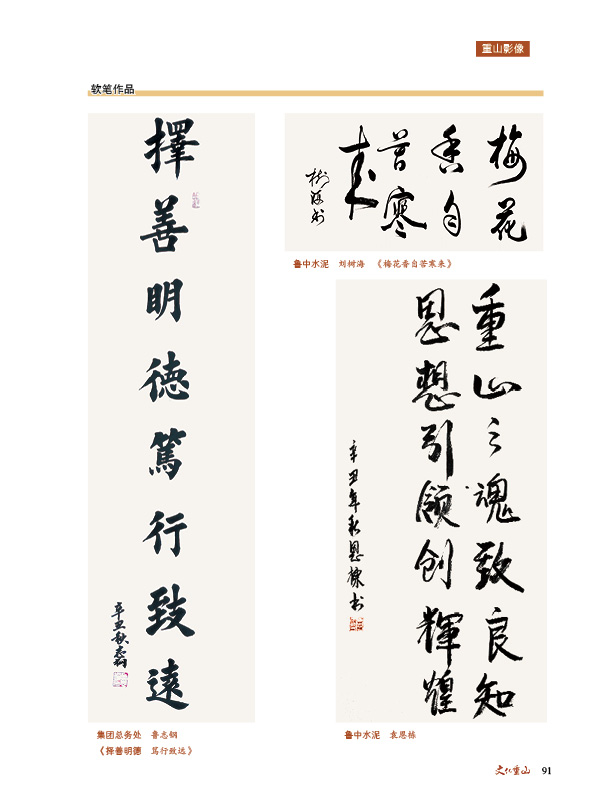 重山影像
软笔作品
擇善明德篤行致遠
辛丑秋志钢
集团总务处 鲁志钢
《择善明德 笃行致远》
梅花
香自
苦寒
来
树海书
鲁中水泥 刘树海 《梅花香自苦寒来》
重山之魂致良知
思想引领创輝煌
辛丑年秋恩栋书
鲁中水泥 袁恩栋
文化重山 91